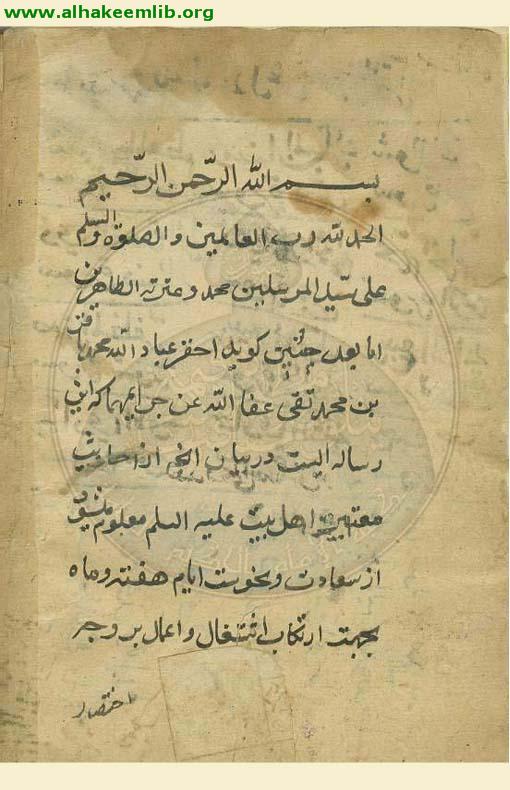 www.alhakeemlib.org
بسم الله الرّحمن الرّحيم
الحمد لله رب العالمين والصلوة والسلم
على سيّد المرسلين محمد وعترته الطاهرين
اما بعد چنین کوید احقر عباد الله محمد باقر
بن محمد تقی عفا الله عن جرایمهما که این
رساله ایست در بیان انچه از احادیث
معتبره اهل بیت علیه السلم معلوم میشود
از سعادت و نحوست ایام هفته و ماه
بجهت ارتکاب اشتغال و اعمال بر وجه
اختصار